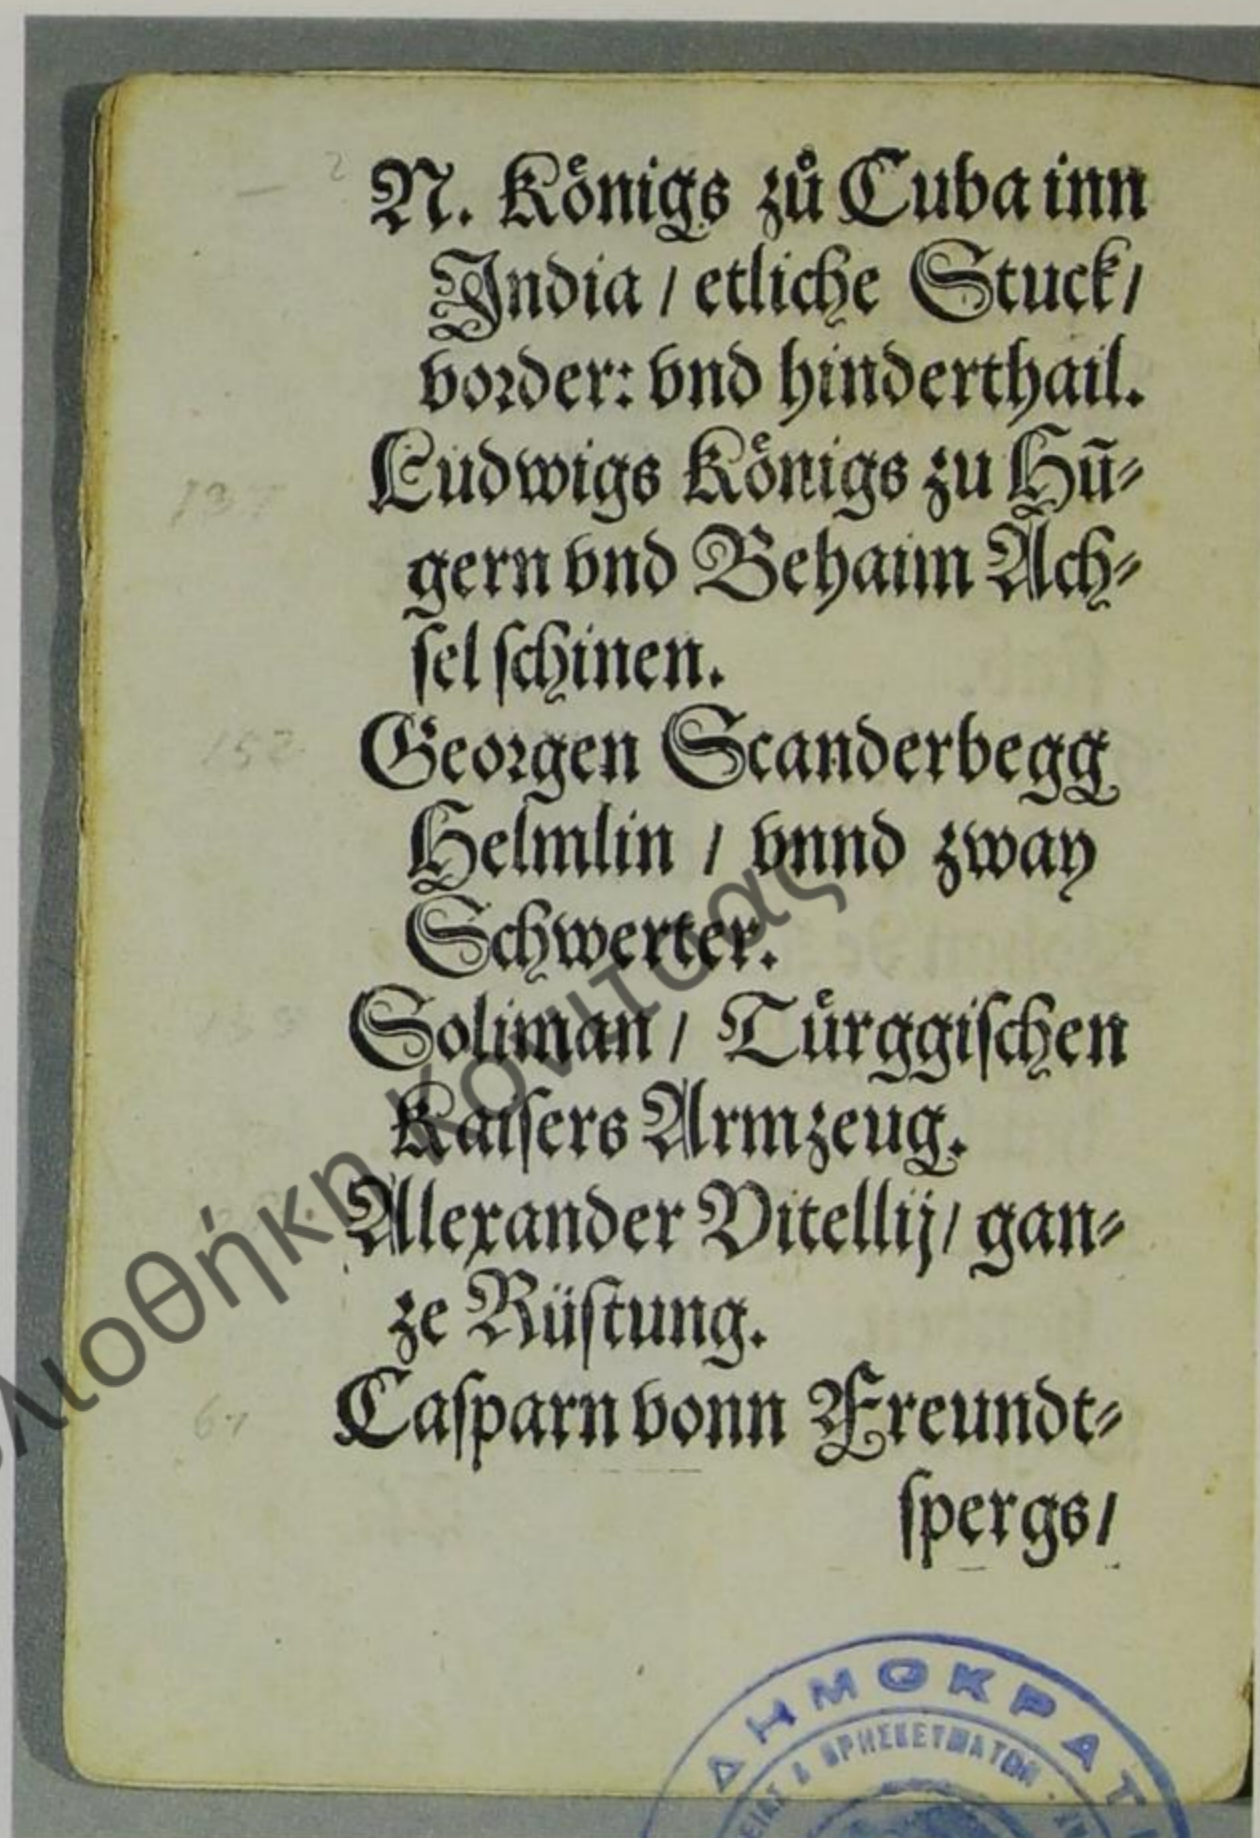 2
N. Koͤnigs zuͦ Cuba inn
India / etliche Stuck /
vorder: vnd hinderthail.
Ludwigs Koͤnigs zu Hū⸗
gern vnd Behaim Ach⸗
ſel ſchinen.
152
Georgen Scanderbegg
Helmlin / vnnd zway
Schwerter.
Soliman / Tuͤrggiſchen
Kaiſers Armzeug.
Alexander Vitellij / gan⸗
ze Rüſtung.
Caſparn vonn Freundt⸗
ſpergs /
λιοθήκη Κόνιτσας
ΔΗΜΟΚΡΑΤ
& ΘΡΗΣΚΕΥΜΑΤΩΝ